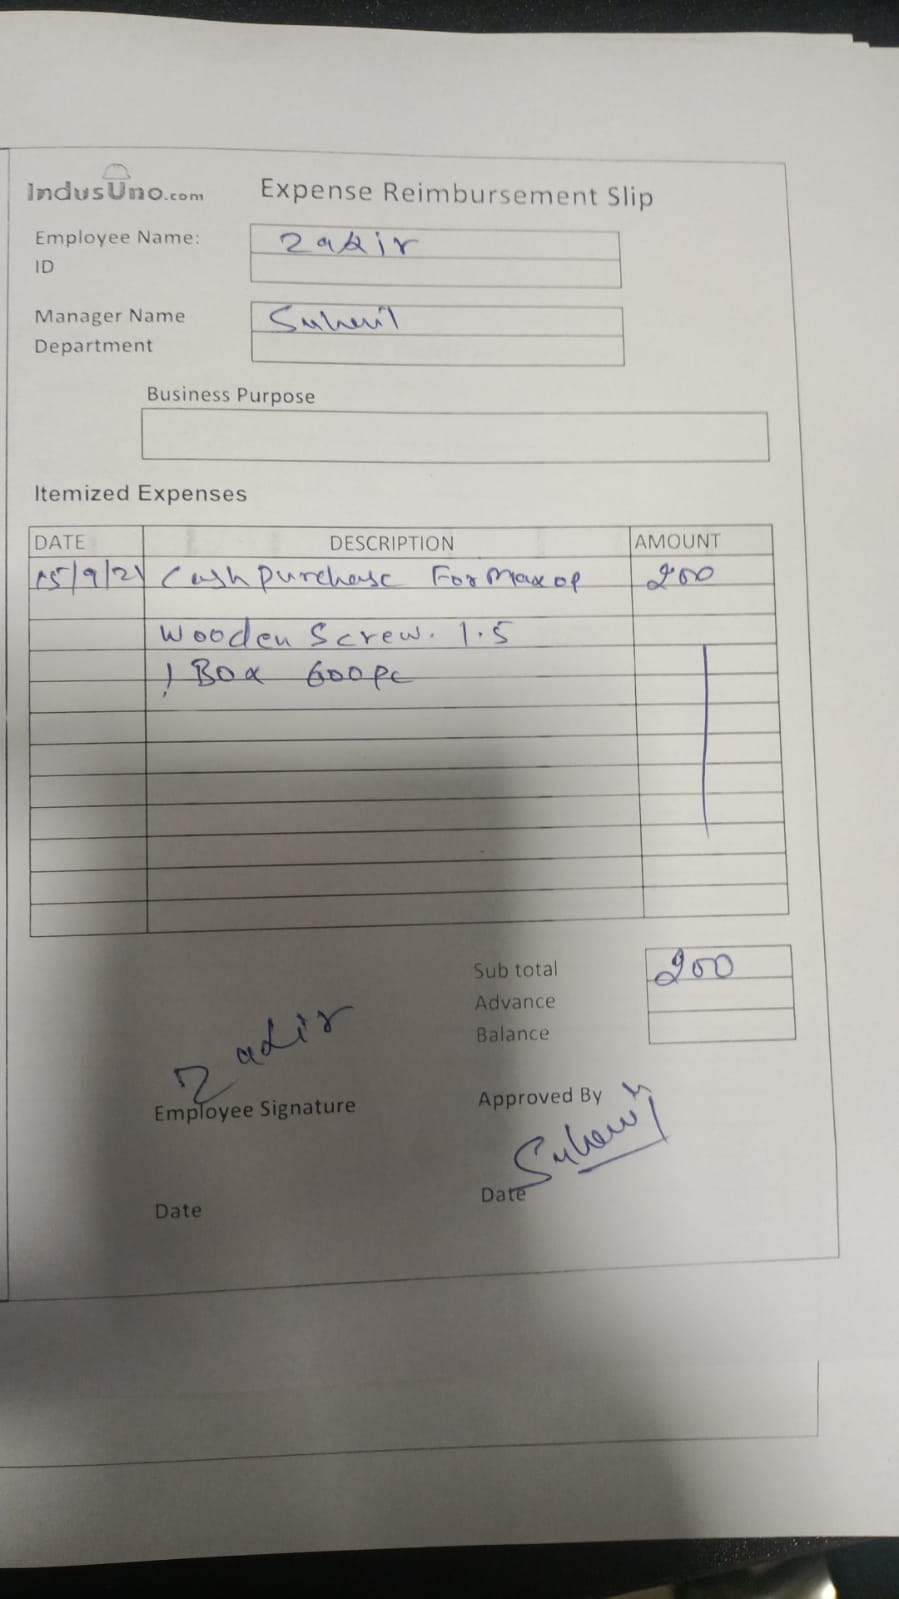 IndusUno.com Expense Reimbursement Slip
Employee Name: Zakir
ID
Manager Name Suheil
Department
Business Purpose
Itemized Expenses
DATE DESCRIPTION AMOUNT
15/9/21 Cash Purchase For Maxop 200
Wooden Screw. 1.5
1 Box 600 pc
Sub total 200
Advance
Balance
Zakir
Employee Signature Approved By
Suheil
Date Date